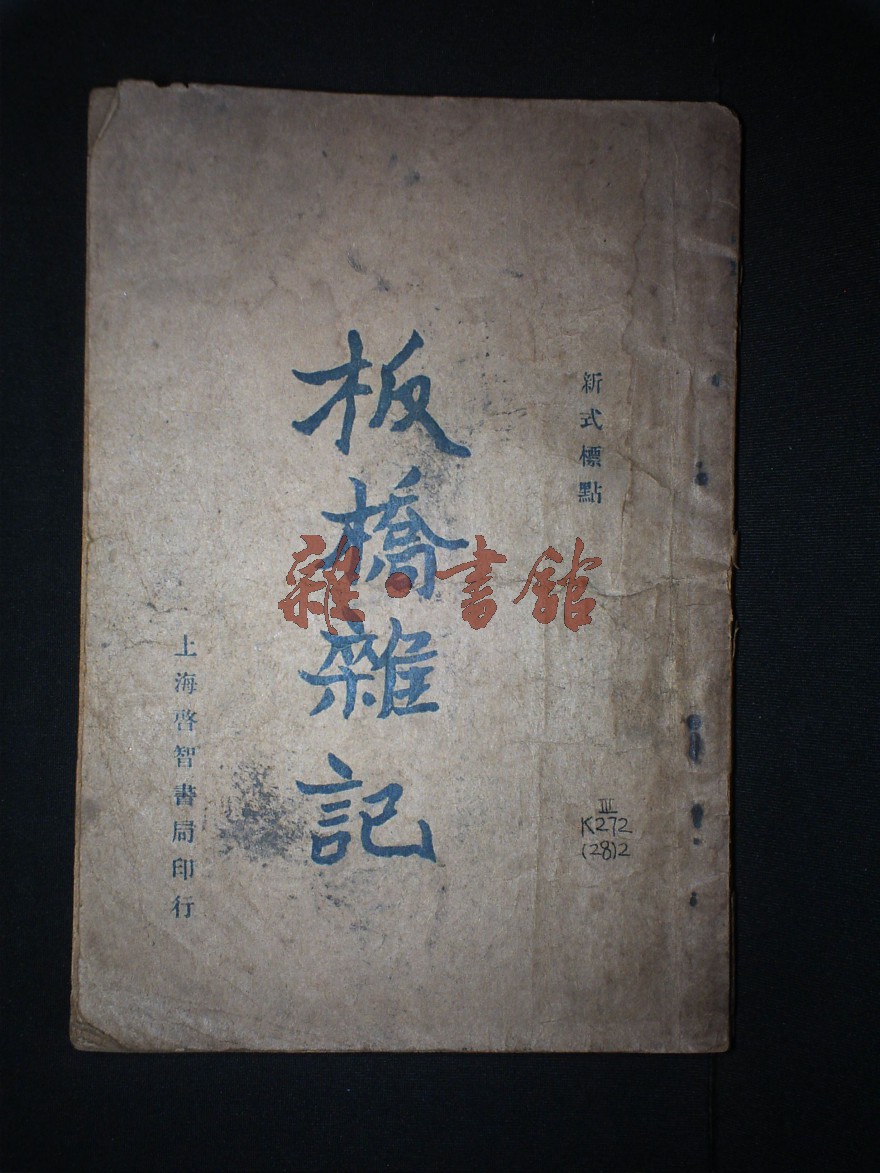 新式標點
板橋雜記
上海啓智書局印行
雜·書館
III
K272
(28)2